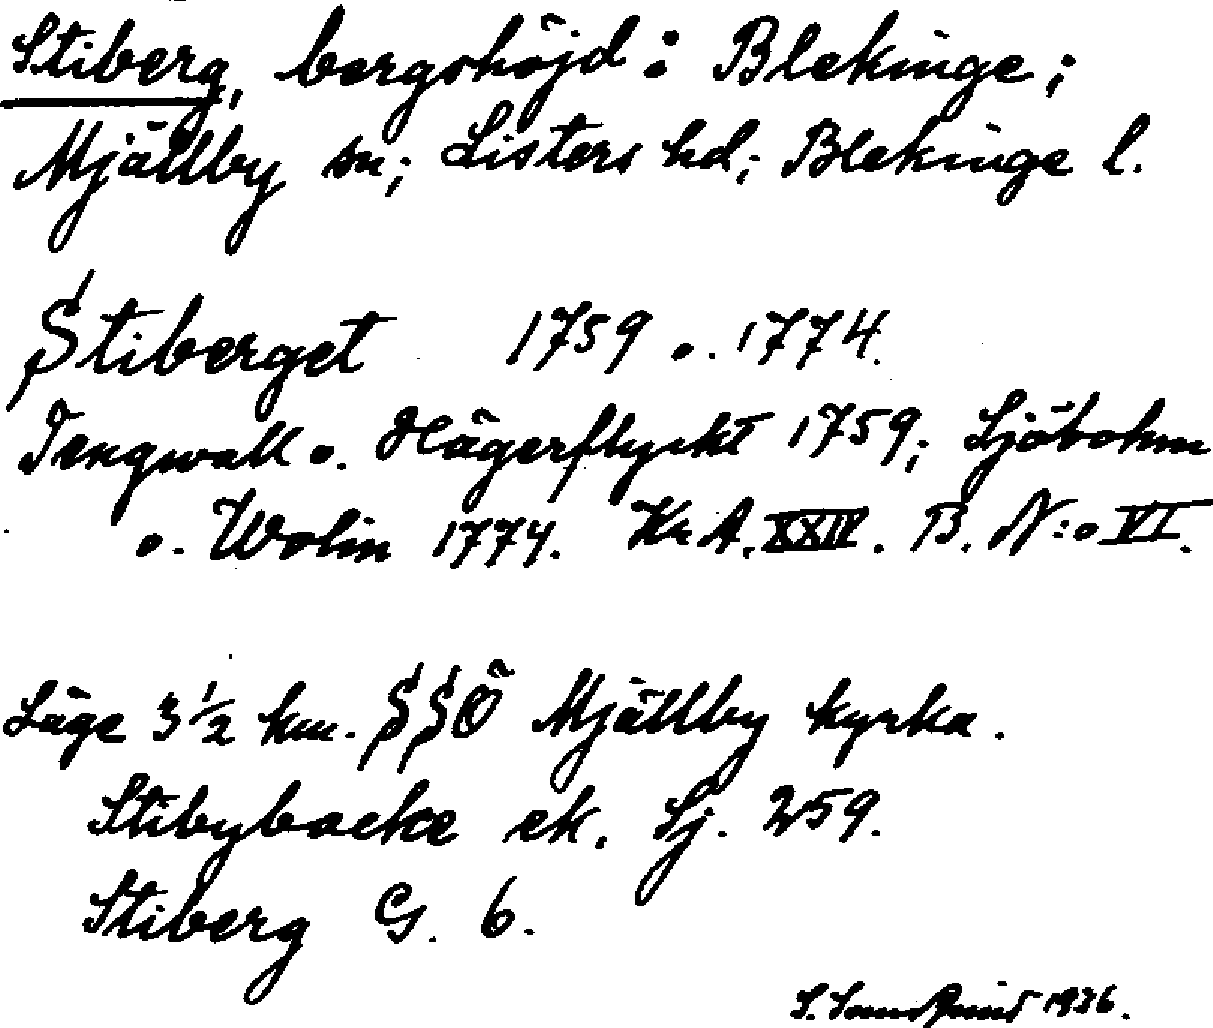 Stiberg, bergshöjd i Blekinge;
Mjällby sn; Listers hd; Blekinge l.
Stiberget 1759 o. 1774.
Tengwall o. Hägerflycht 1759; Sjöbohm
o. Wolin 1774. Kr.A. XXIV. B. N:o VI.
Läge 3 1/2 km. SSÖ Mjällby kyrka.
Stibybacke ek. Sj. 259.
Stiberg G. 6.
S. 1936.